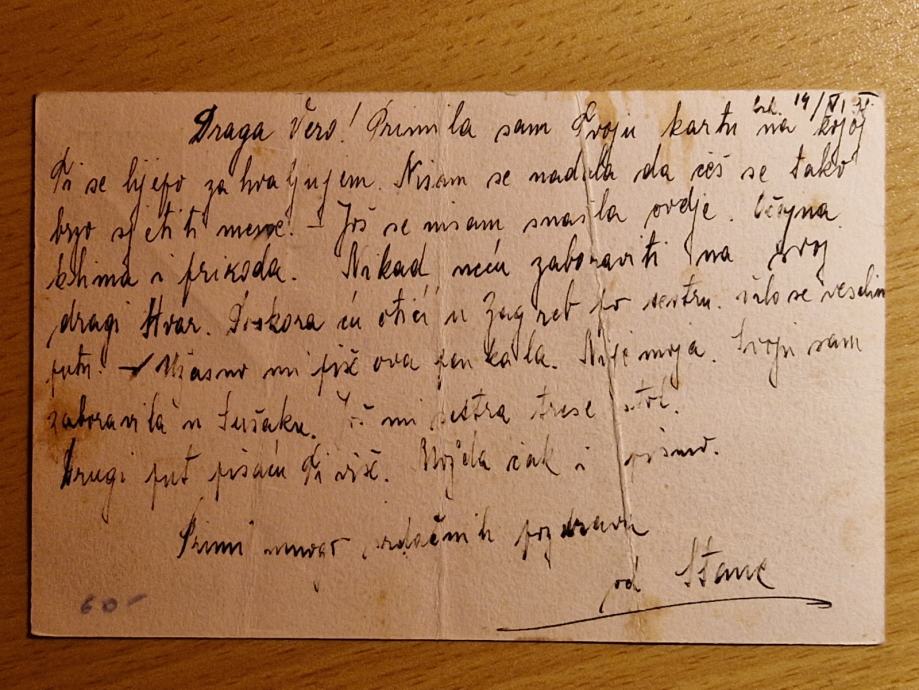 14/XI
Draga Vero! Primila sam Tvoju kartu na kojoj
Ti se lijepo zahvaljujem. Nisam se nadala da ćeš se tako
brzo sjetiti mene. - Još se nisam snašla ovdje.
klima i priroda. Nikad neću zaboraviti na svoj
dragi Hvar. Doskora ću otići u Zagreb po sestru. vrlo se veselim
putu. - Užasno mi piše ova penkala. Nije moja. Svoju sam
zaboravila u Sušaku. Još mi sestra trese stol.
Drugi put pisaću Ti više. Možda čak i pismo.
Primi mnogo srdačnih pozdrava
od Stane
60-